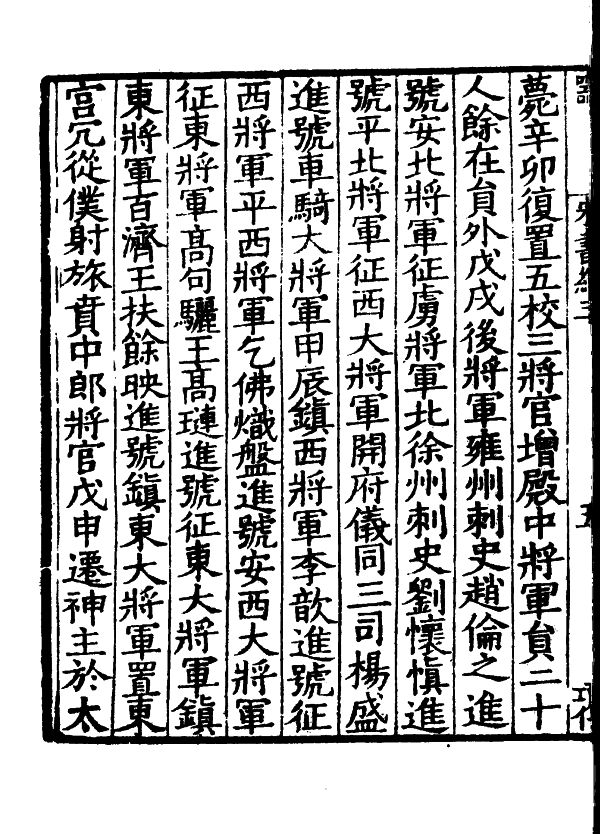 宋書紀三
五
薨辛卯復置五校三將官增殿中將軍貟二十
人餘在貟外戊戌後將軍雍州刺史趙倫之進
號安北將軍征虜將軍北徐州刺史劉懷慎進
號平北將軍征西大將軍開府儀同三司楊盛
進號車騎大將軍甲辰鎮西將軍李歆進號征
西將軍平西將軍乞佛熾盤進號安西大將軍
征東將軍髙句驪王髙璉進號征東大將軍鎮
東將軍百濟王扶餘映進號鎮東大將軍置東
宮冗從僕射旅賁中郎將官戊申遷神主於太